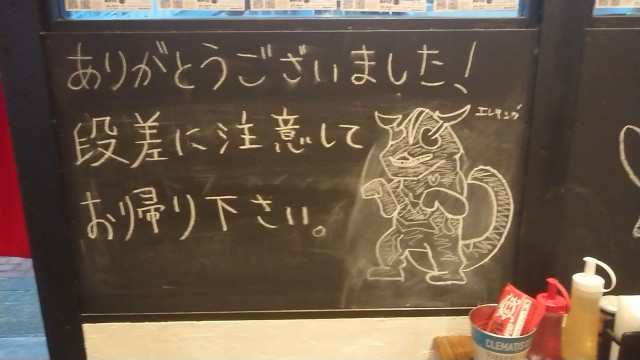 ありがとうございました!
段差に注意して
お帰り下さい。
エレキング
CLEMATIS